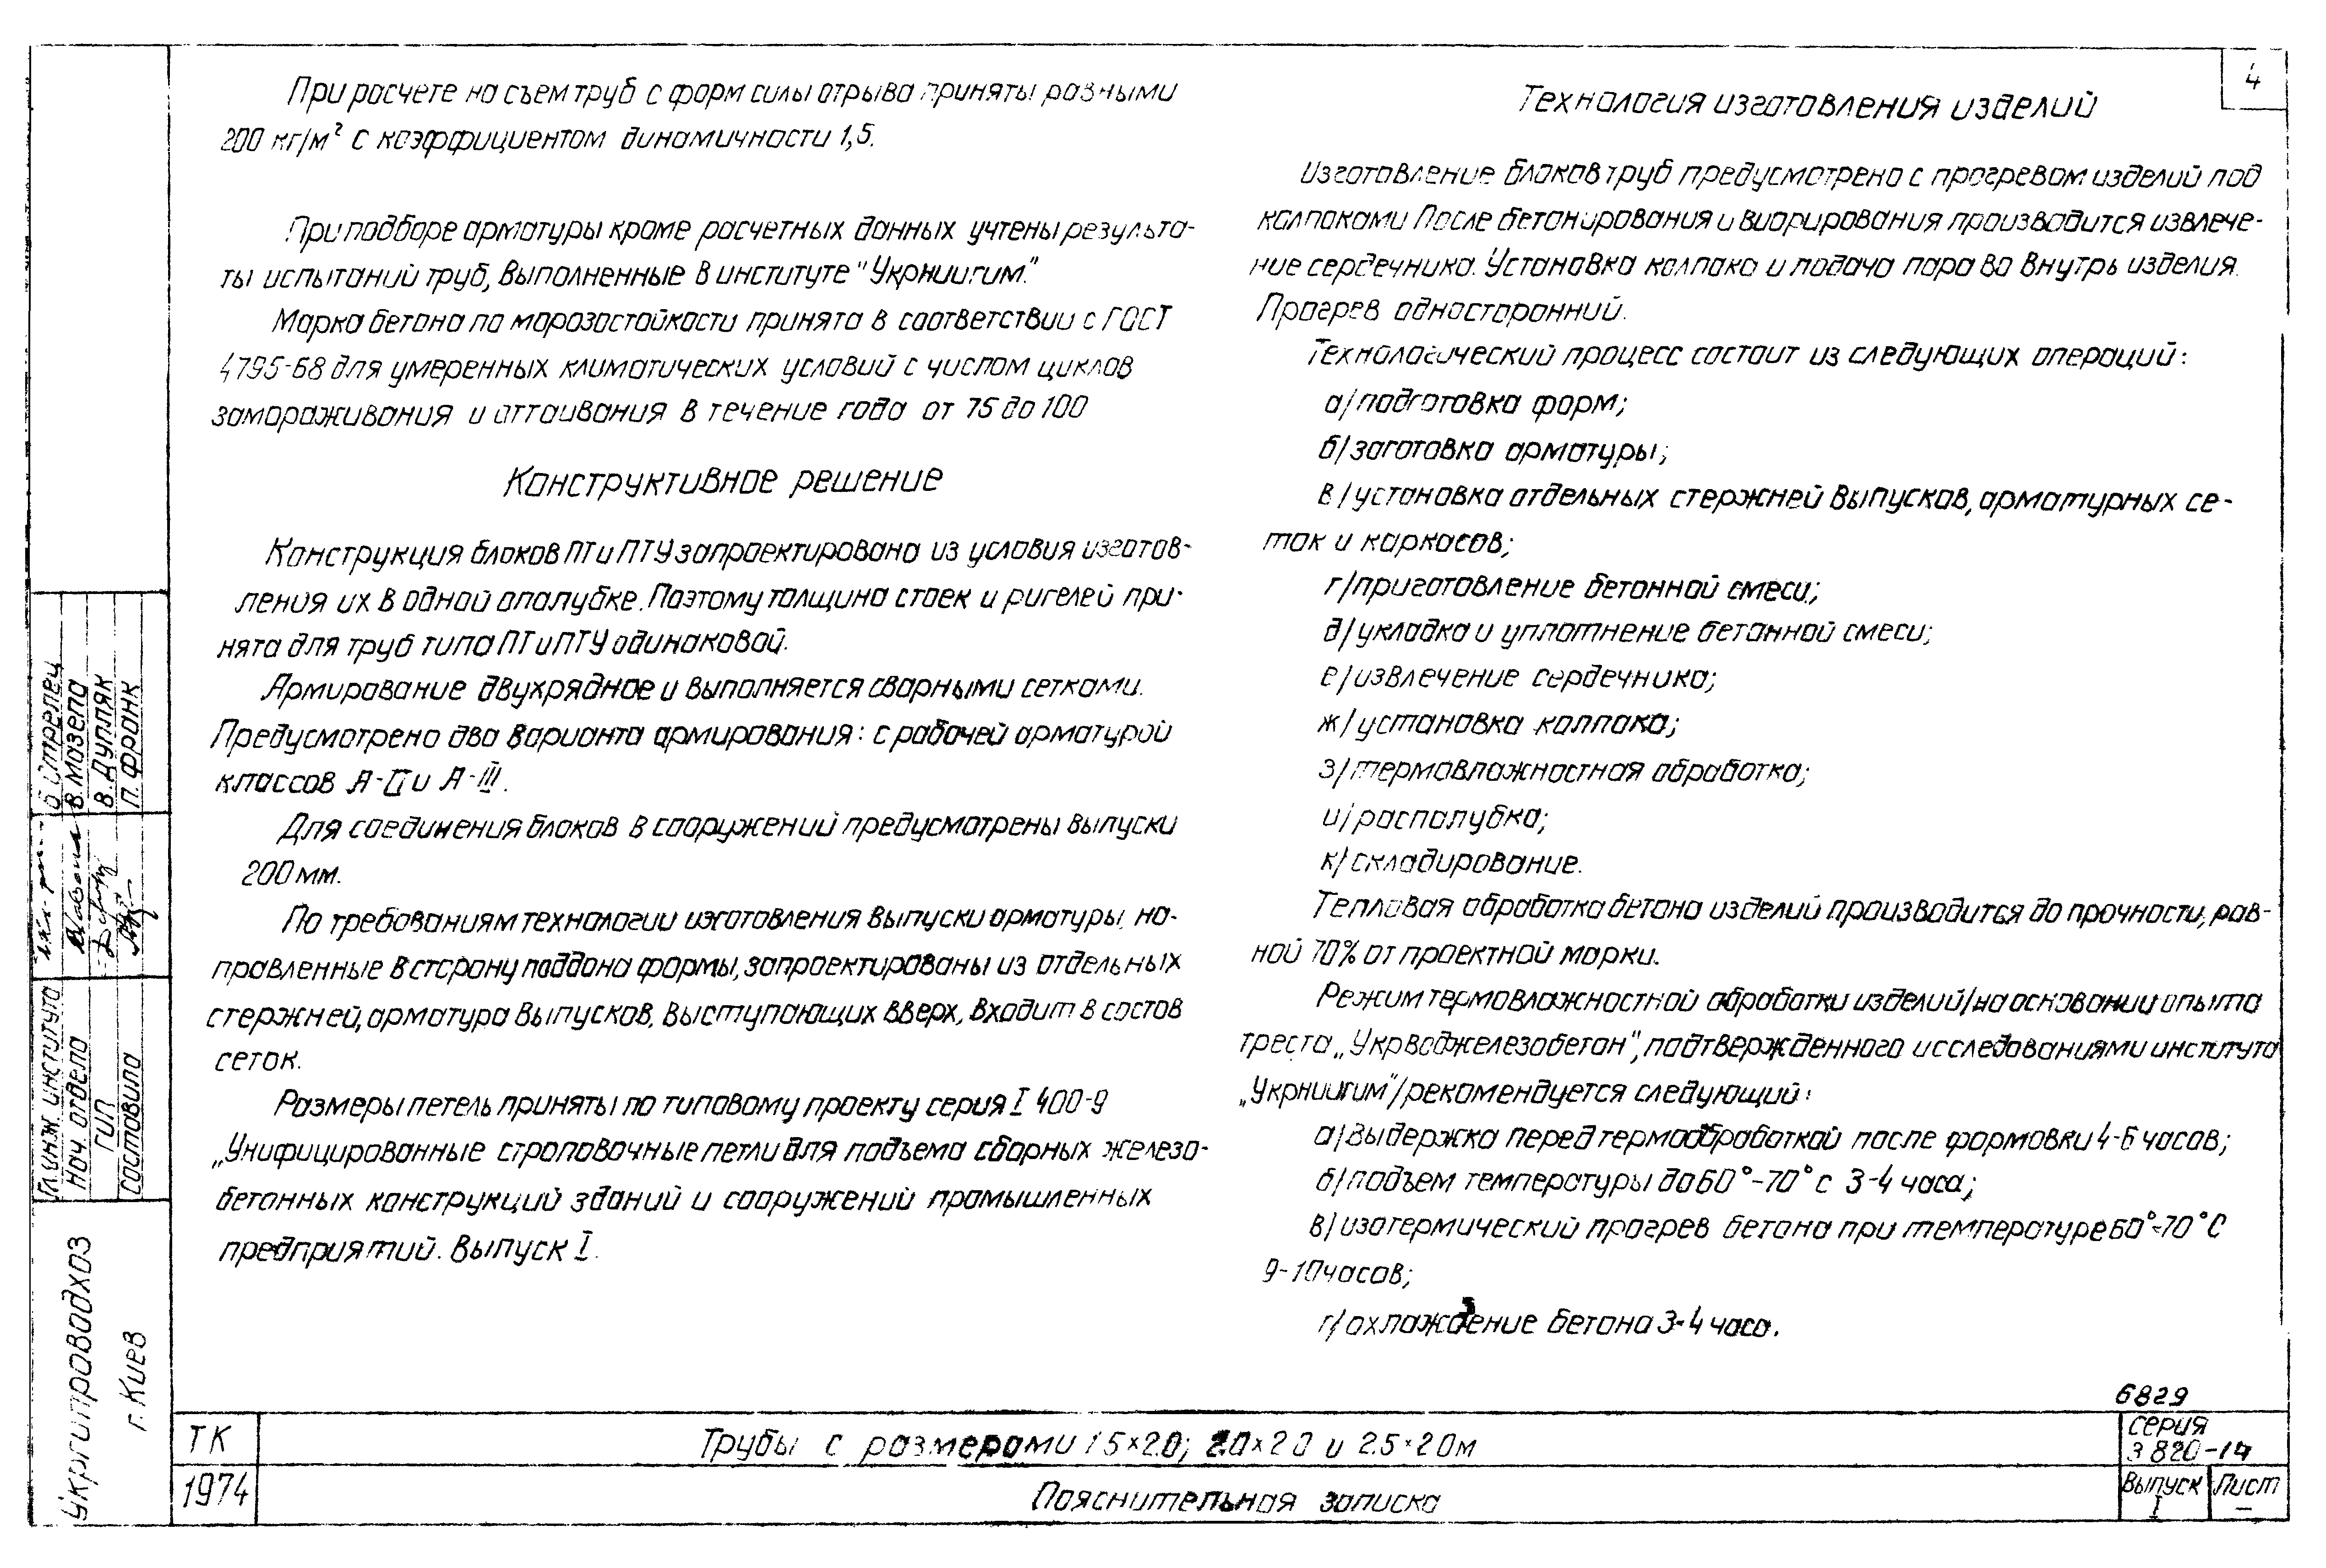 При расчете на съем труб с форм силы отрыва приняты равными
200 кг/м² с коэффициентом динамичности 1,5.
При подборе арматуры кроме расчетных данных учтены результа-
ты испытаний труб, выполненные в институте "Укрниигим."
Марка бетона по морозостойкости принята в соответствии с ГОСТ
4795-68 для умеренных климатических условий с числом циклов
замораживания и оттаивания в течение года от 75 до 100
Конструктивное решение
Конструкция блоков ПТ и ПТУ запроектирована из условия изготов-
ления их в одной опалубке. Поэтому толщина стоек и ригелей при-
нята для труб типа ПТ и ПТУ одинаковой.
Армирование двухрядное и выполняется сварными сетками.
Предусмотрено два варианта армирования: с рабочей арматурой
классов А-II и А-III.
Для соединения блоков в сооружений предусмотрены выпуски
200 мм.
По требованиям технологии изготовления выпуски арматуры, на-
правленные в сторону поддона формы, запроектированы из отдельных
стержней, арматура выпусков, выступающих вверх, входит в состов
сеток.
Размеры петель приняты по типовому проекту серия I 400-9
„Унифицированные строповочные петли для подъема сборных железо-
бетонных конструкций зданий и сооружений промышленных
предприятий. Выпуск I.
4
Технология изготовления изделий
Изготовление блоков труб предусмотрено с прогревом изделий под
колпаками После бетонирования и вибрирования производится извлече-
ние сердечника. Установка колпака и подача пара во внутрь изделия.
Прогрев односторонний.
Технологический процесс состоит из следующих операций:
а/подготовка форм;
б/заготовка арматуры;
в/установка отдельных стержней выпусков, арматурных се-
ток и каркасов;
г/приготовление бетонной смеси;
д/укладка и уплотнение бетонной смеси;
е/извлечение сердечника;
ж/установка колпака;
з/термовлажностная обработка;
и/распалубка;
к/складирование.
Тепловая обработка бетона изделий производится до прочности, рав-
ной 70% от проектной марки.
Режим термовлажностной обработки изделий/на основании опыта
треста „Укрводжелезобетон", подтвержденного исследованиями института
„Укрниигим"/рекомендуется следующий:
а/выдержка перед термообработкой после формовки 4-6 часов;
б/подъем температуры до 60°-70° с 3-4 часа;
в/изотермический прогрев бетона при температуре 60°-70°С
9-10 часов;
г/охлаждение бетона 3-4 часа.
6829
ТК
1974
Трубы с размерами 1.5×2.0; 2.0×2.0 и 2.5×2.0м
Пояснительная записка
серия
3 820-14
Выпуск
I
Лист
—
Гл. инж. института
Нач. отдела
ГИП
составила
Стрелец
В. Мазепа
В. Дупляк
П. Франк
Укргипроводхоз
г. Киев